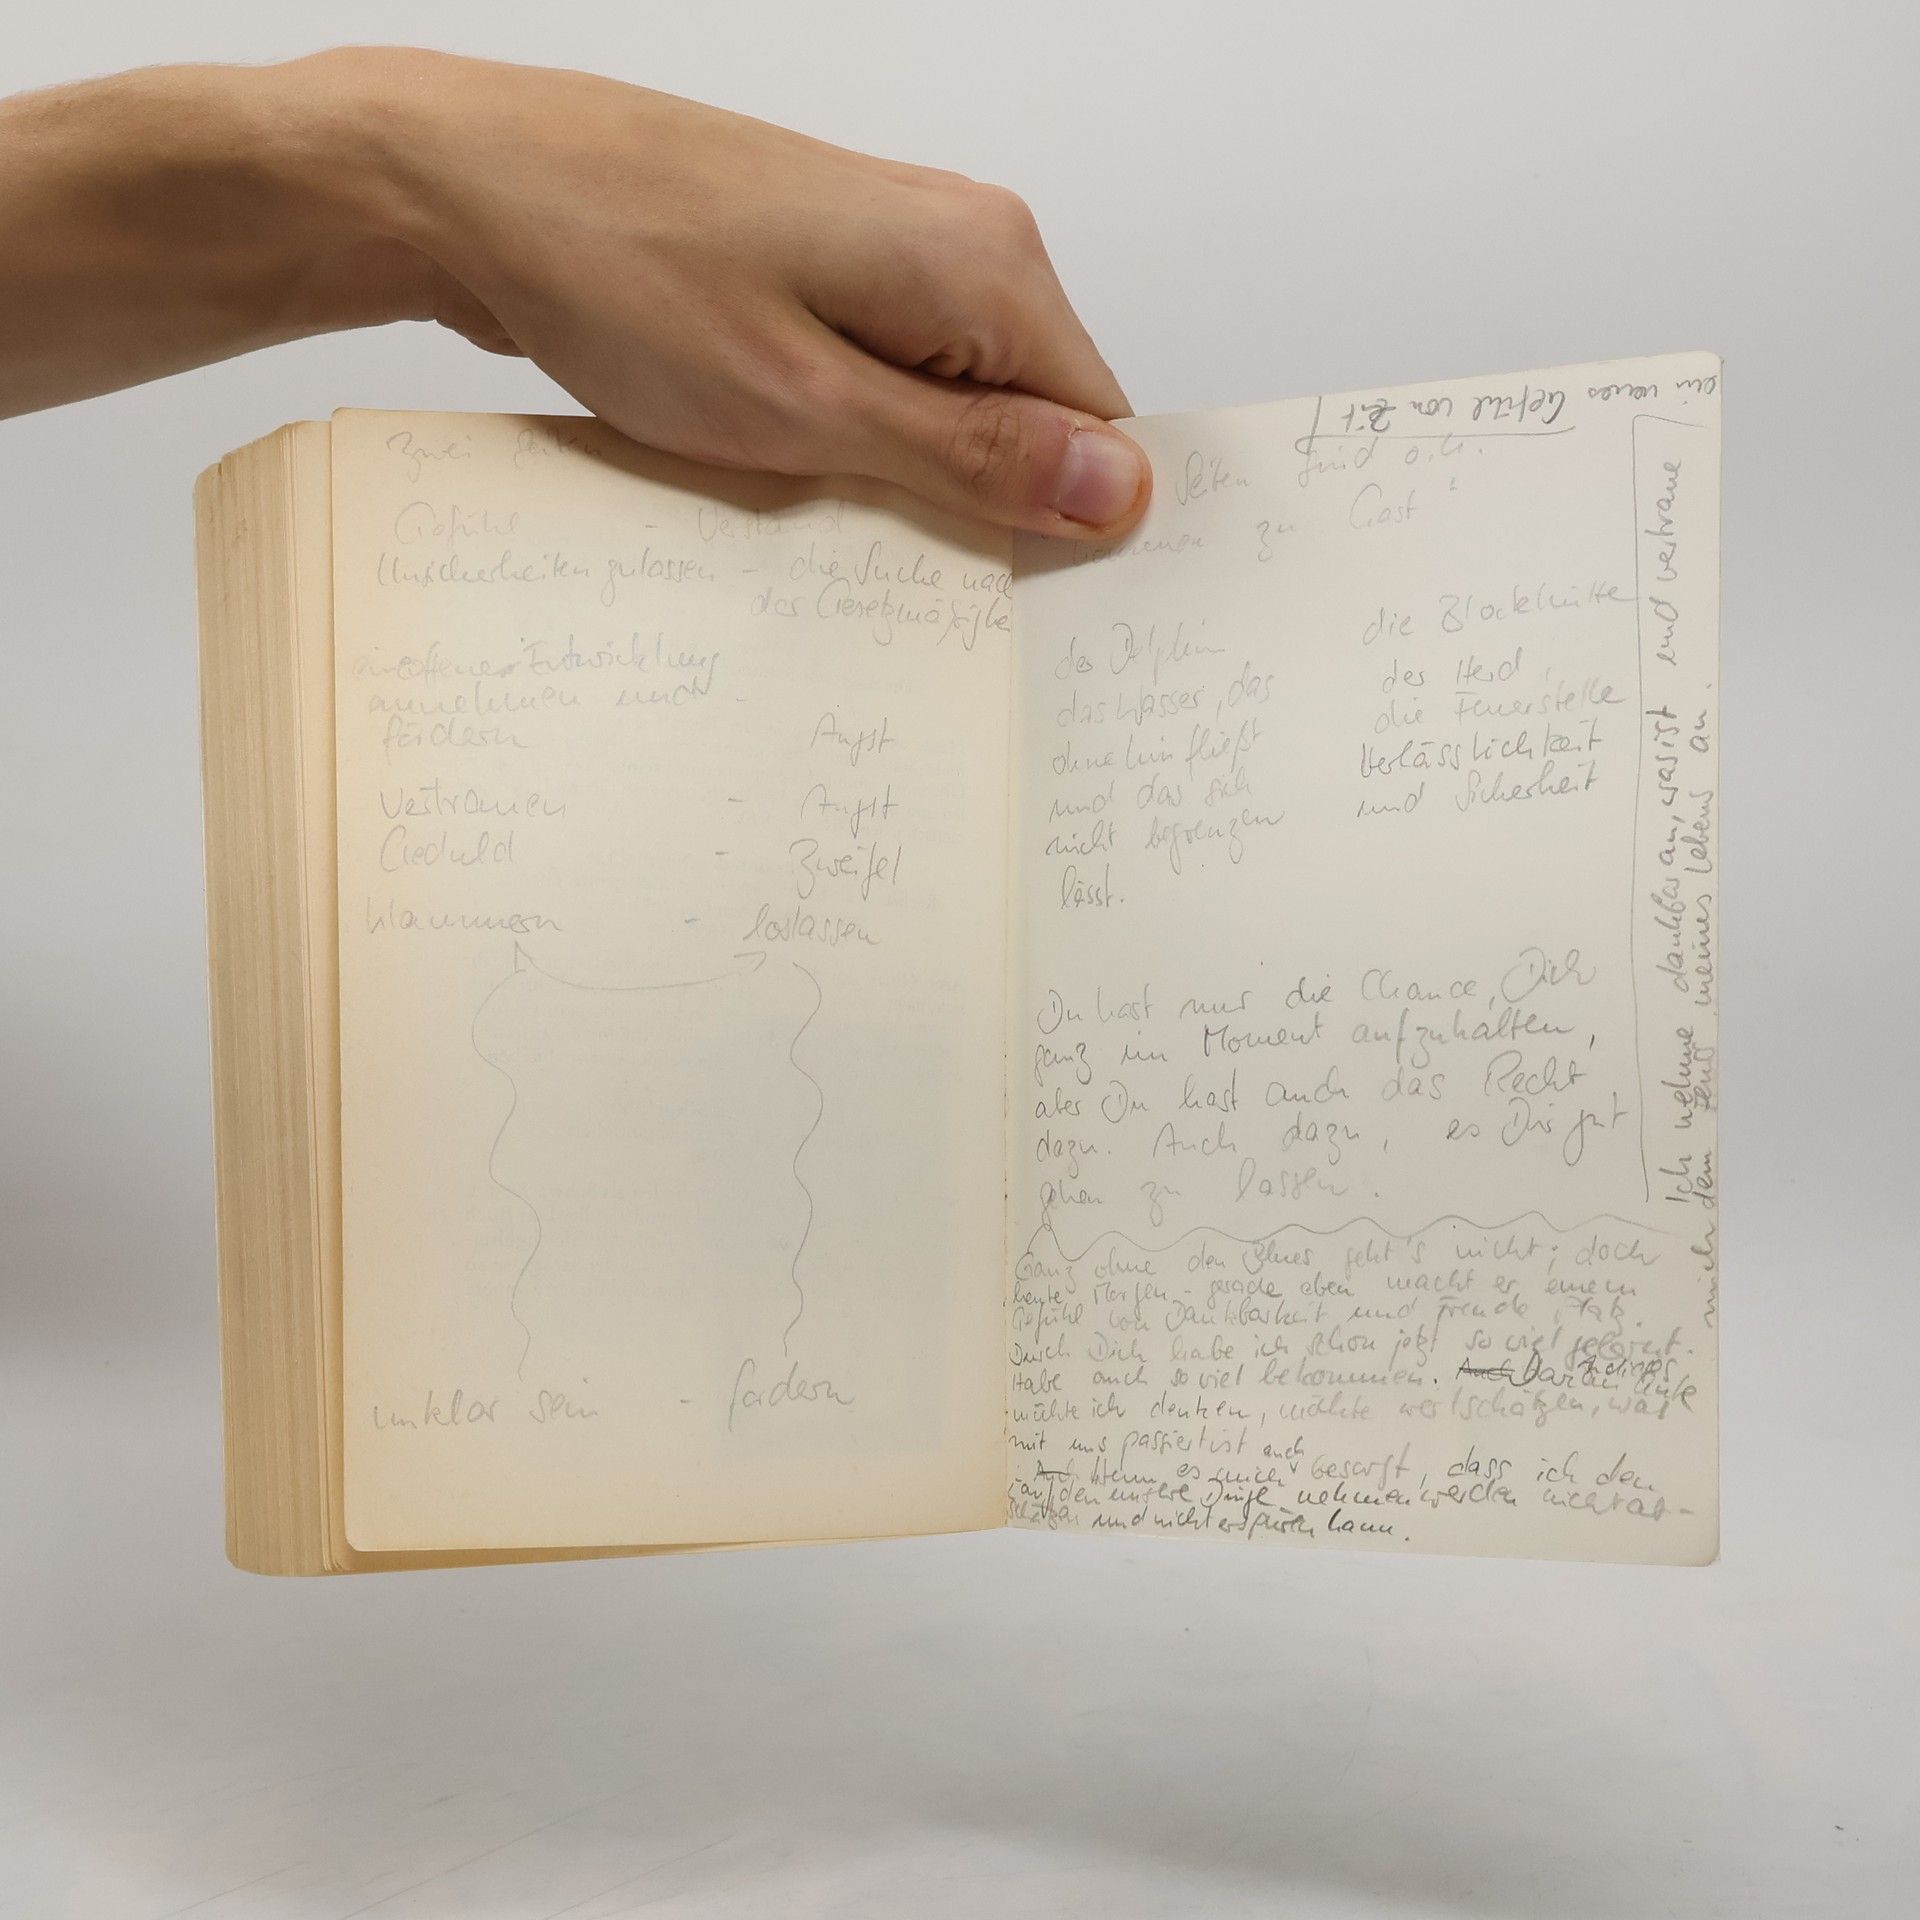 Zwei Seiten
Gefühl - Verstand
Unsicherheiten zulassen - die Suche nach
der Gesetzmäßigke
eine offene Entwicklung
annehmen und -
fördern Angst
Vertrauen - Angst
Geduld - Zweifel
klammern - loslassen
unklar sein - fordern
ein neues Gefühl von Zeit
Seiten sind o.k.
kommen zu Gast"
der Delphin
das Wasser, das
ohnehin fließt
und das sich
nicht begrenzen
lässt.
die Blockhütte
der Herd,
die Feuerstelle
Verlässlichkeit
und Sicherheit
Du hast nur die Chance, Dich
ganz im Moment aufzuhalten,
aber Du hast auch das Recht
dazu. Auch dazu, es Dir gut
gehen zu lassen.
Ganz ohne den Blues geht's nicht; doch
heute Morgen - gerade eben macht er einem
Gefühl von Dankbarkeit und Freude Platz.
Durch Dich habe ich schon jetzt so viel gelernt.
Habe auch so viel bekommen. Auch Daran
möchte ich denken, möchte wertschätzen, was
mit uns passiert ist
Auch wenn es mich auch besorgt, dass ich den
auf den unsere Dinge nehmen werden nicht ab-
schätzen und nicht erspüren kann.
Ich nehme dankbar an, was ist und vertraue
mich dem Fluss meines Lebens an.